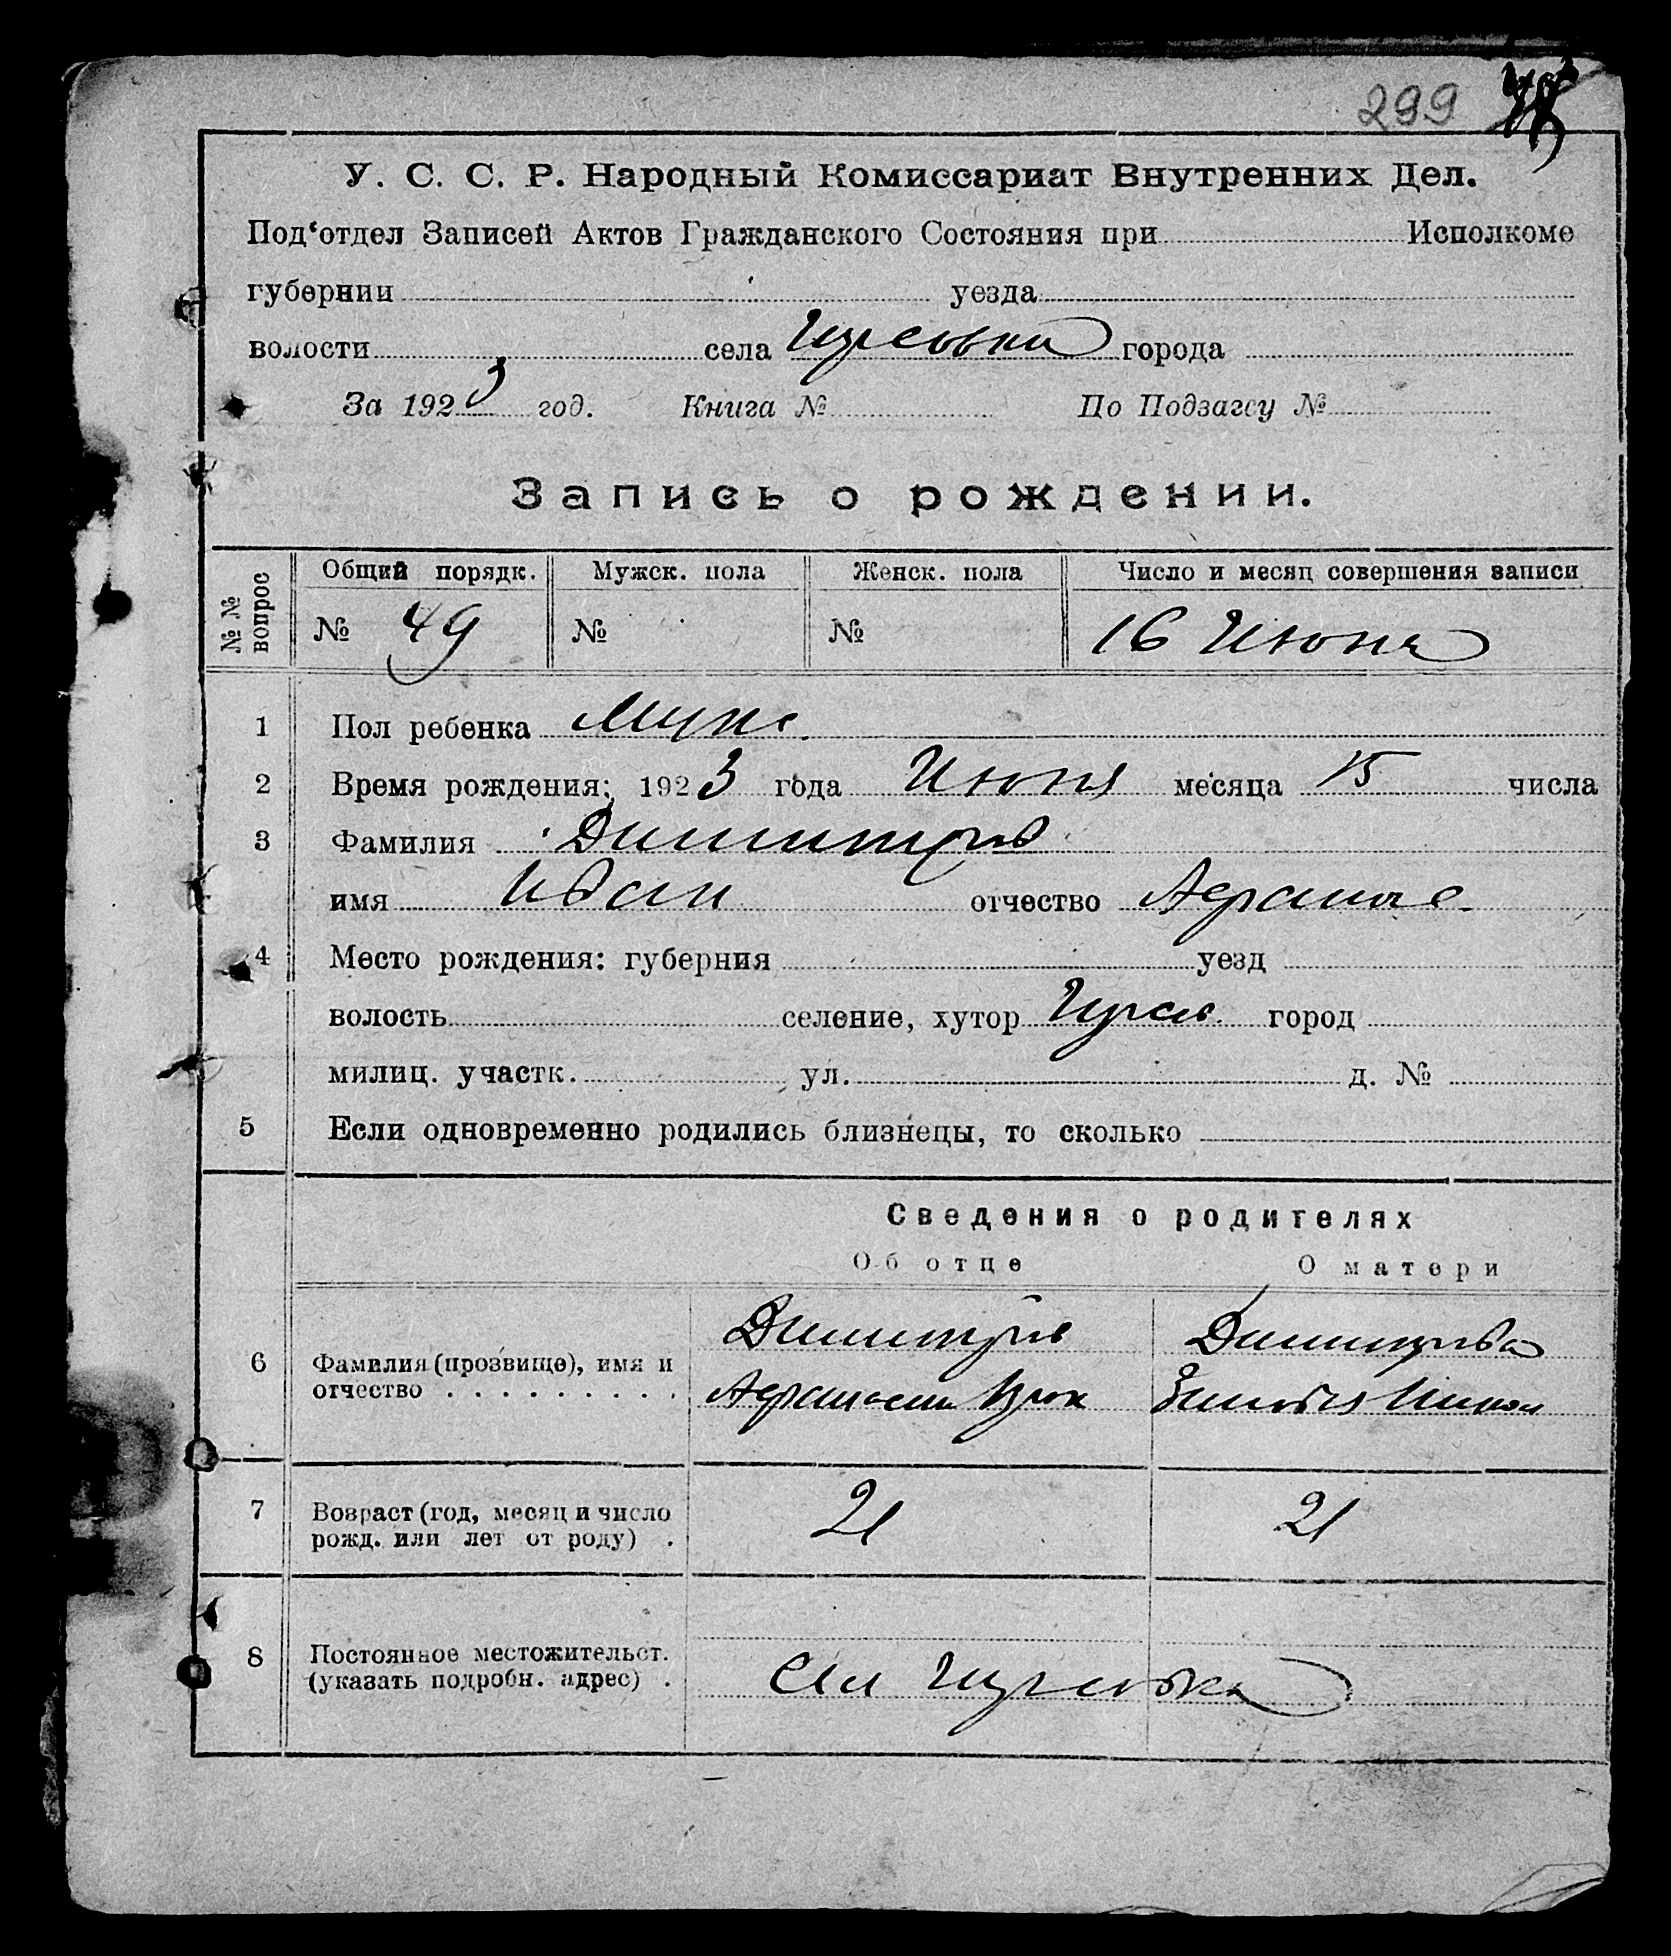 299
У. С. С. Р. Народный Комиссариат Внутренних Дел.
Под‘отдел Записей Актов Гражданского Состояния при Исполкоме
губернии уезда
волости села города
За 1923 год. Книга № По Подзагсу №
Запись о рождении.
№№ вопрос Общий порядк. Мужск. пола Женск. пола Число и месяц совершения записи
№ 49 № № 16 Июня
1 Пол ребенка Мужс.
2 Время рождения: 1923 года Июня месяца 15 числа
3 Фамилия Димитров
имя Иван отчество Афанас.
4 Место рождения: губерния уезд
волость селение, хутор город
милиц. участк. ул. д. №
5 Если одновременно родились близнецы, то сколько
Сведения о родителях
Об отце О матери
6 Фамилия (прозвище), имя и отчество . . . . . . . . . . Димитров Димитрова
Афанасий Зиновия
7 Возраст (год, месяц и число рожд. или лет от роду) . 21 21
8 Постоянное местожительст. (указать подробн. адрес) .